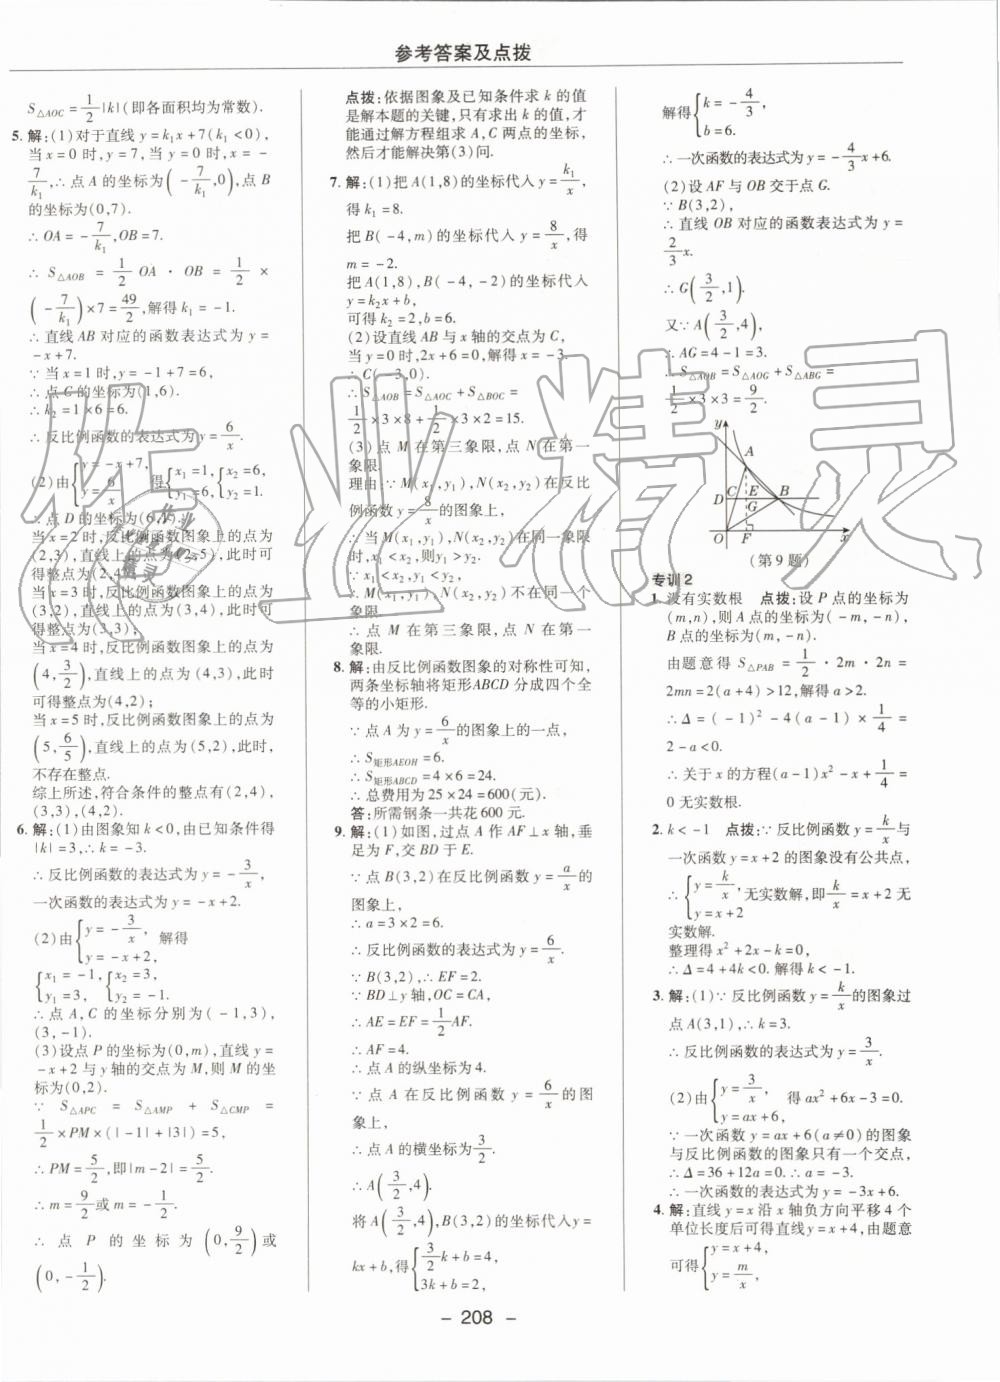 参考答案及点拨
S△AOC=1/2|k|(即各面积均为常数).
5. 解:(1)对于直线 y=k₁x+7(k₁<0),
当 x=0 时,y=7,当 y=0 时,x=-
7/k₁,∴点 A 的坐标为(-7/k₁,0),点 B
的坐标为(0,7).
∴OA=-7/k₁,OB=7.
∴S△AOB=1/2 OA·OB=1/2×
(-7/k₁)×7=49/2,解得 k₁=-1.
∴直线 AB 对应的函数表达式为 y=
-x+7.
∵当 x=1 时,y=-1+7=6,
∴点 C 的坐标为(1,6).
∴k₂=1×6=6.
∴反比例函数的表达式为 y=6/x.
(2)由{y=-x+7, y=6/x 得{x₁=1, y₁=6,{x₂=6, y₂=1.
∴点 D 的坐标为(6,1).
当 x=2 时,反比例函数图象上的点为
(2,3),直线上的点为(2,5),此时可
得整点为(2,4);
当 x=3 时,反比例函数图象上的点为
(3,2),直线上的点为(3,4),此时可
得整点为(3,3);
当 x=4 时,反比例函数图象上的点为
(4,3/2),直线上的点为(4,3),此时
可得整点为(4,2);
当 x=5 时,反比例函数图象上的点为
(5,6/5),直线上的点为(5,2),此时,
不存在整点.
综上所述,符合条件的整点有(2,4),
(3,3),(4,2).
6. 解:(1)由图象知 k<0,由已知条件得
|k|=3,∴k=-3.
∴反比例函数的表达式为 y=-3/x,
一次函数的表达式为 y=-x+2.
(2)由{y=-3/x, y=-x+2, 解得
{x₁=-1, y₁=3,{x₂=3, y₂=-1.
∴点 A,C 的坐标分别为(-1,3),
(3,-1).
(3)设点 P 的坐标为(0,m),直线 y=
-x+2 与 y 轴的交点为 M,则 M 的坐
标为(0,2).
∵S△APC=S△AMP+S△CMP=
1/2×PM×(|-1|+|3|)=5,
∴PM=5/2,即|m-2|=5/2.
∴m=9/2或 m=-1/2.
∴点 P 的坐标为(0,9/2)或
(0,-1/2).
点拨:依据图象及已知条件求 k 的值
是解本题的关键,只有求出 k 的值,才
能通过解方程组求 A,C 两点的坐标,
然后才能解决第(3)问.
7. 解:(1)把 A(1,8)的坐标代入 y=k₁/x,
得 k₁=8.
把 B(-4,m)的坐标代入 y=8/x,得
m=-2.
把 A(1,8),B(-4,-2)的坐标代入
y=k₂x+b,
可得 k₂=2,b=6.
(2)设直线 AB 与 x 轴的交点为 C,
当 y=0 时,2x+6=0,解得 x=-3.
∴C(-3,0).
∴S△AOB=S△AOC+S△BOC=
1/2×3×8+1/2×3×2=15.
(3)点 M 在第三象限,点 N 在第一
象限.
理由:∵M(x₁,y₁),N(x₂,y₂)在反比
例函数 y=8/x 的图象上,
∴当 M(x₁,y₁),N(x₂,y₂)在同一象限
时,x₁<x₂,则 y₁>y₂.
∵x₁<x₂,y₁<y₂,
∴M(x₁,y₁),N(x₂,y₂)不在同一个
象限.
∴点 M 在第三象限,点 N 在第一
象限.
8. 解:由反比例函数图象的对称性可知,
两条坐标轴将矩形ABCD 分成四个全
等的小矩形.
∵点 A 为 y=6/x 的图象上的一点,
∴S矩形AEOH=6.
∴S矩形ABCD=4×6=24.
∴总费用为 25×24=600(元).
答:所需钢条一共花 600 元.
9. 解:(1)如图,过点 A 作 AF⊥x 轴,垂
足为 F,交 BD 于 E.
∵点 B(3,2)在反比例函数 y=a/x 的
图象上,
∴a=3×2=6.
∴反比例函数的表达式为 y=6/x.
∵B(3,2),∴EF=2.
∵BD⊥y 轴,OC=CA,
∴AE=EF=1/2 AF.
∴AF=4.
∴点 A 的纵坐标为 4.
∵点 A 在反比例函数 y=6/x 的图
象上,
∴点 A 的横坐标为 3/2.
∴A(3/2,4).
将 A(3/2,4),B(3,2)的坐标代入 y=
kx+b,得{3/2 k+b=4, 3k+b=2,
解得{k=-4/3, b=6.
∴一次函数的表达式为 y=-4/3 x+6.
(2)设 AF 与 OB 交于点 G.
∵B(3,2),
∴直线 OB 对应的函数表达式为 y=
2/3 x.
∴G(3/2,1).
又∵A(3/2,4),
∴AG=4-1=3.
∴S△AOB=S△AOG+S△ABG=
1/2×3×3=9/2.
y
A
D C E B
G
O F x
(第 9 题)
专训2
1. 没有实数根 点拨:设 P 点的坐标为
(m,n),则 A 点的坐标为(-m,-n),
B 点的坐标为(m,-n).
由题意得 S△PAB=1/2·2m·2n=
2mn=2(a+4)>12,解得 a>2.
∴Δ=(-1)²-4(a-1)×1/4=
2-a<0.
∴关于 x 的方程(a-1)x²-x+1/4=
0
2. k<-1 点拨:∵反比例函数 y=k/x 与
一次函数 y=x+2 的图象没有公共点,
∴{y=k/x, y=x+2 无实数解,即 k/x=x+2 无
实数解.
整理得 x²+2x-k=0,
∴Δ=4+4k<0. 解得 k<-1.
3. 解:(1)∵反比例函数 y=k/x 的图象过
点 A(3,1),∴k=3.
∴反比例函数的表达式为 y=3/x.
(2)由{y=3/x, y=ax+6, 得 ax²+6x-3=0.
∵一次函数 y=ax+6(a≠0)的图象
与反比例函数的图象只有一个交点,
∴Δ=36+12a=0. ∴a=-3.
∴一次函数的表达式为 y=-3x+6.
4. 解:直线 y=x 沿 x 轴负方向平移 4 个
单位长度后可得直线 y=x+4,由题意
可得{y=x+4, y=m/x,
- 208 -
作业精灵